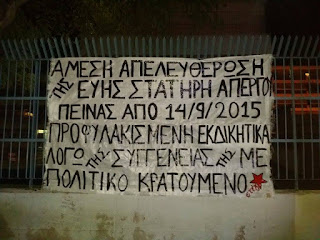 ΑΜΕΣΗ ΑΠΕΛΕΥΘΕΡΩΣΗ
ΤΗΣ ΕΥΗΣ ΣΤΑΤΗΡΗ ΑΠΕΡΓΟΥ
ΠΕΙΝΑΣ ΑΠΟ 14/9/2015
ΠΡΟΦΥΛΑΚΙΣΜΕΝΗ ΕΚΔΙΚΗΤΙΚΑ
ΛΟΓΩ ΤΗΣ ΣΥΓΓΕΝΕΙΑΣ ΤΗΣ ΜΕ
ΠΟΛΙΤΙΚΟ ΚΡΑΤΟΥΜΕΝΟ